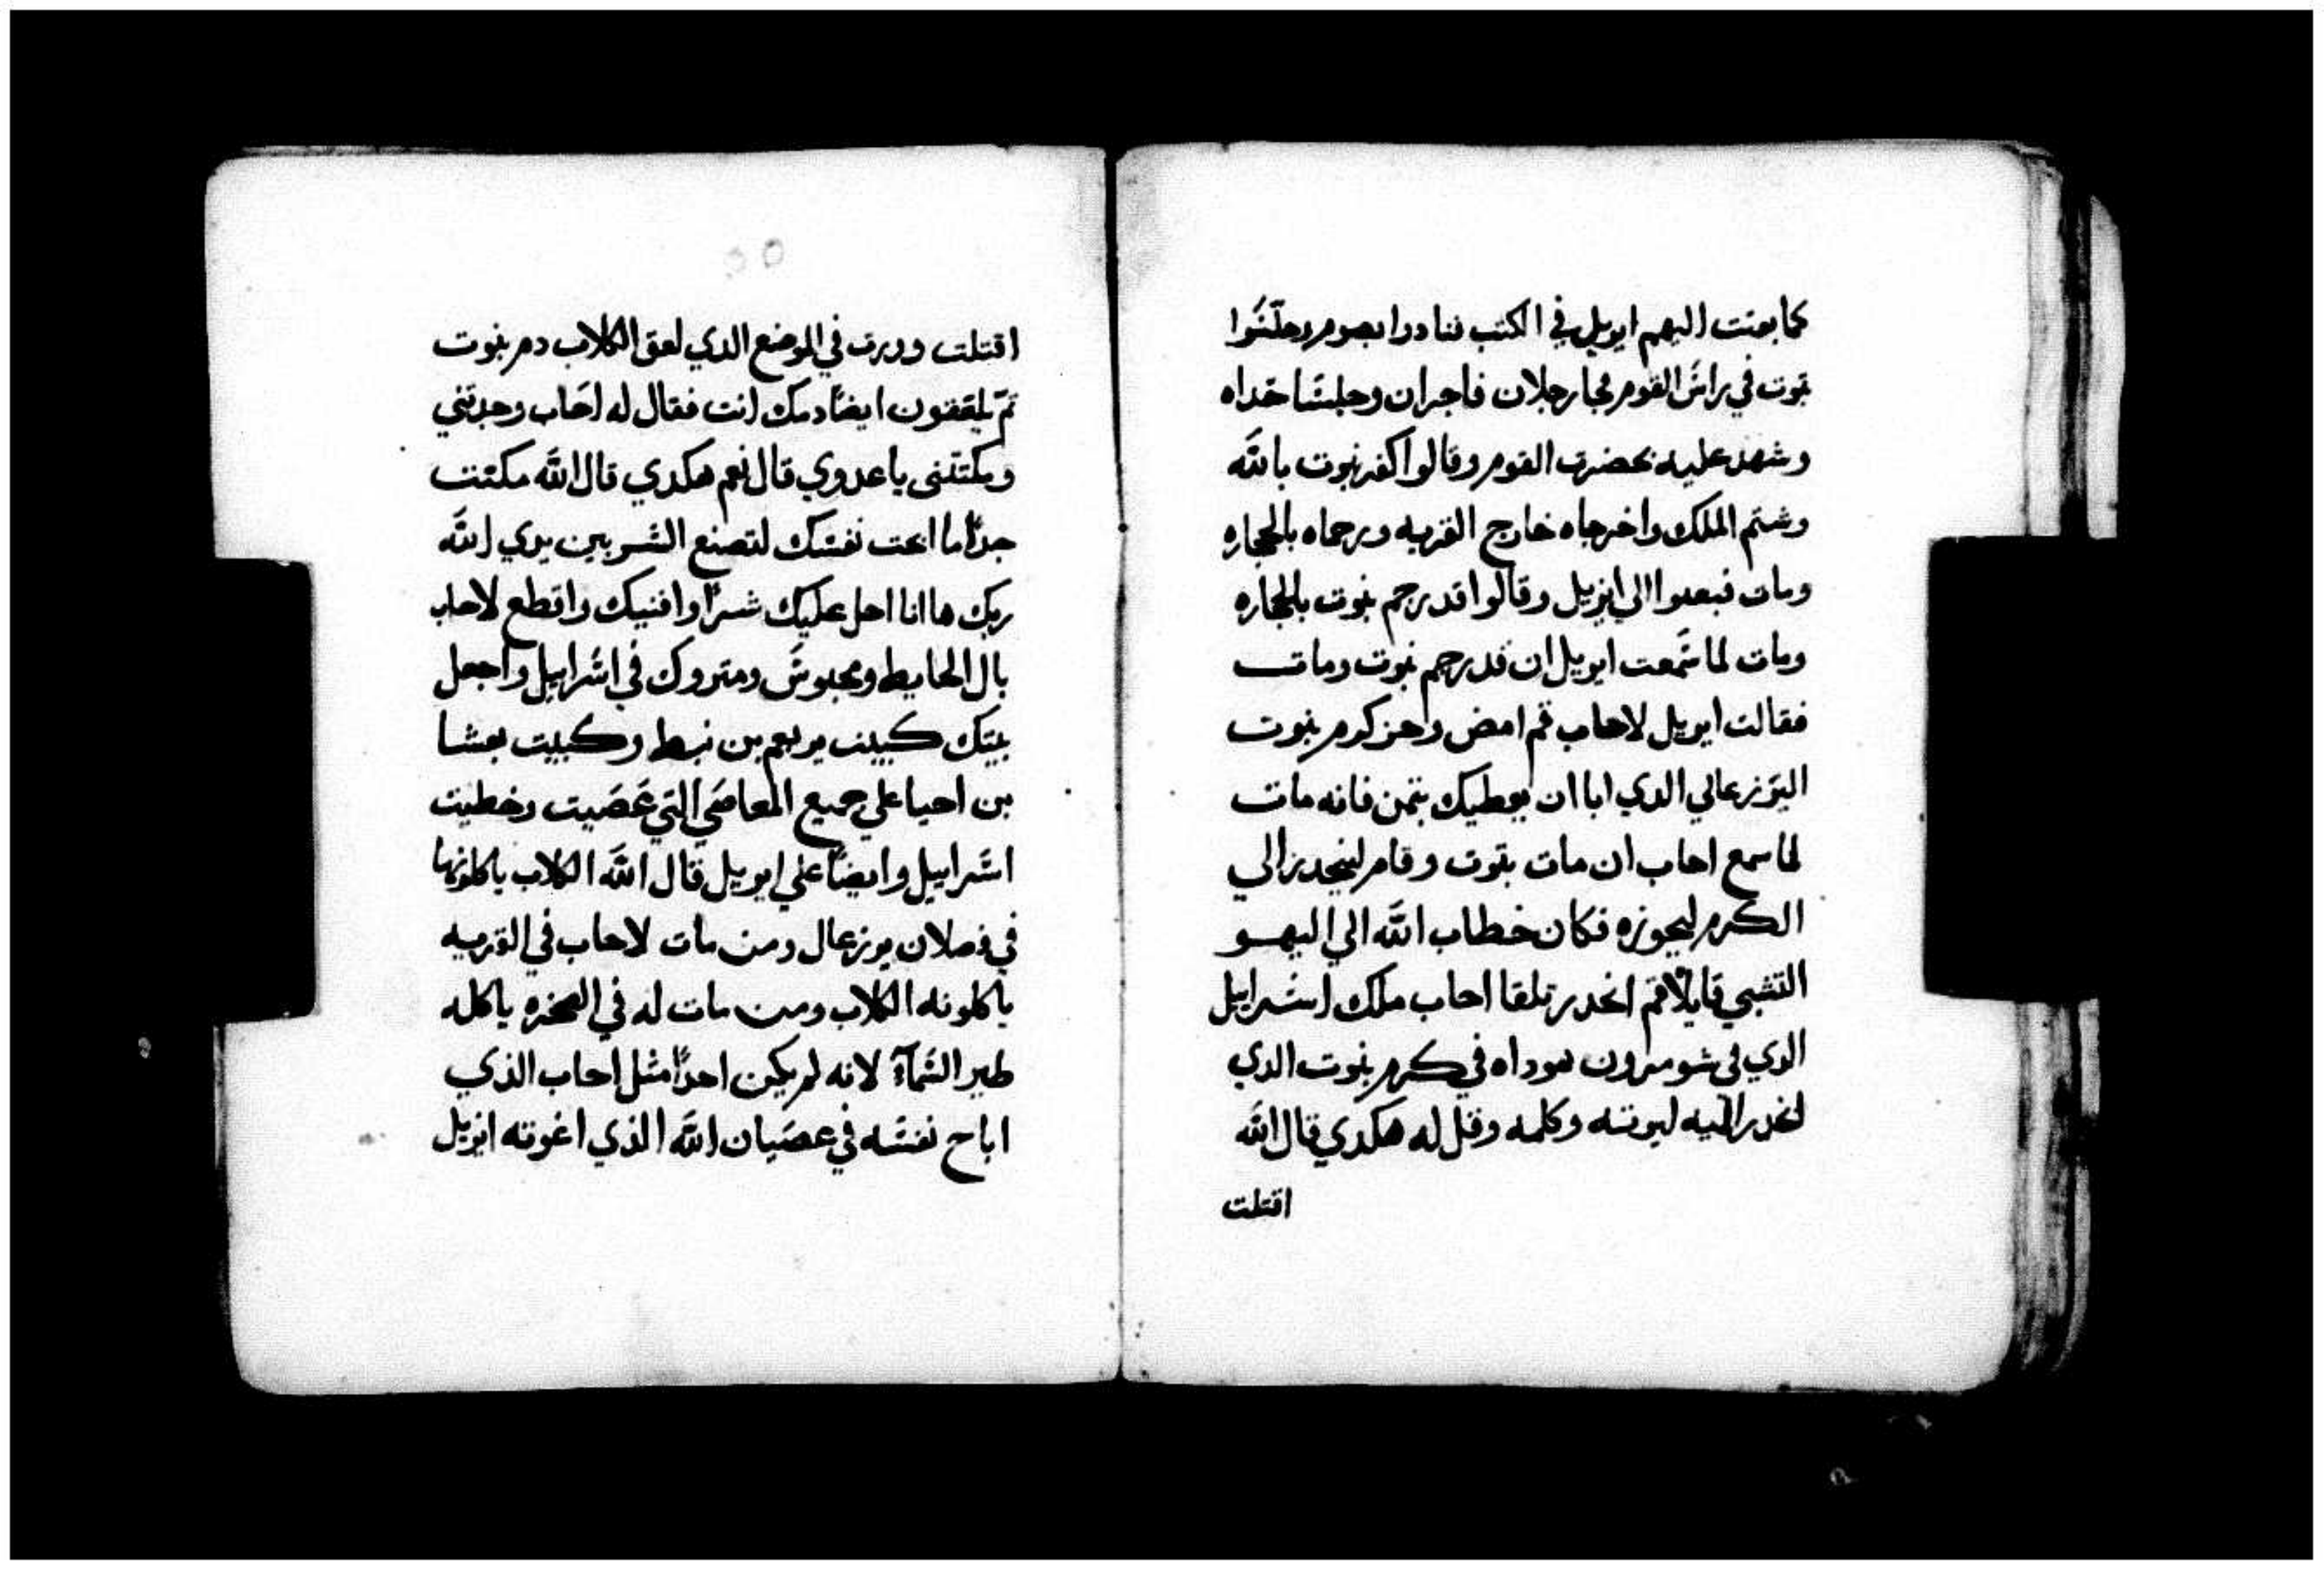 كما بعتت اليهم ايوبل في الكتب فنادوا بصوم وجلسوا
نبوت في راس القوم فجا رجلان فاجران وجلسا حداه
وشهد عليه بحضرت القوم وقالوا كفر نبوت بالله
وشتم الملك واخرجاه خارج القريه ورجماه بالحجاره
ومات فبعتوا الي ايزبل وقالوا قد رجم نبوت بالحجاره
ومات لما سمعت ايوبل ان قد رجم نبوت ومات
فقالت ايوبل لاحاب قم امض وحز كرم نبوت
اليزرعالي الدي ابا ان يعطيك بتمن فانه مات
لما سمع احاب ان مات نبوت وقام لينحدر الي
الكرم ليحوزه فكان خطاب الله الي اليهو
التشبي قايلا قم انحدر تلقا احاب ملك اسراييل
الدي في شومرون هوداه في كرم نبوت الدي
انحدر اليه ليرته وكلمه وقل له هكدي قال الله
اقتلت
اقتلت وورت في الموضع الدي لعق الكلاب دم نبوت
تم يلعقون ايضا دمك انت فقال له احاب وجدتني
ومكنتني يا عدوي قال نعم هكدي قال الله مكنت
جدا ما ابحت نفسك لتصنع الشر بين يدي الله
ربك ها انا احل عليك شرا وافنيك واقطع لاحاب
بال الحايط ومحبوس ومتروك في اسراييل واجعل
بيتك كبيت يربعم بن نبط وكبيت بعشا
بن احيا علي جميع المعاصي التي عصيت وخطيت
اسراييل وايضا علي ايوبل قال الله الكلاب ياكلونها
في فصلان يوزعال ومن مات لاحاب في القريه
ياكلونه الكلاب ومن مات له في الصحره ياكله
طير السمآء لانه لم يكن احدا مثل احاب الذي
اباح نفسه في عصيان الله الذي اغوته ايزبل